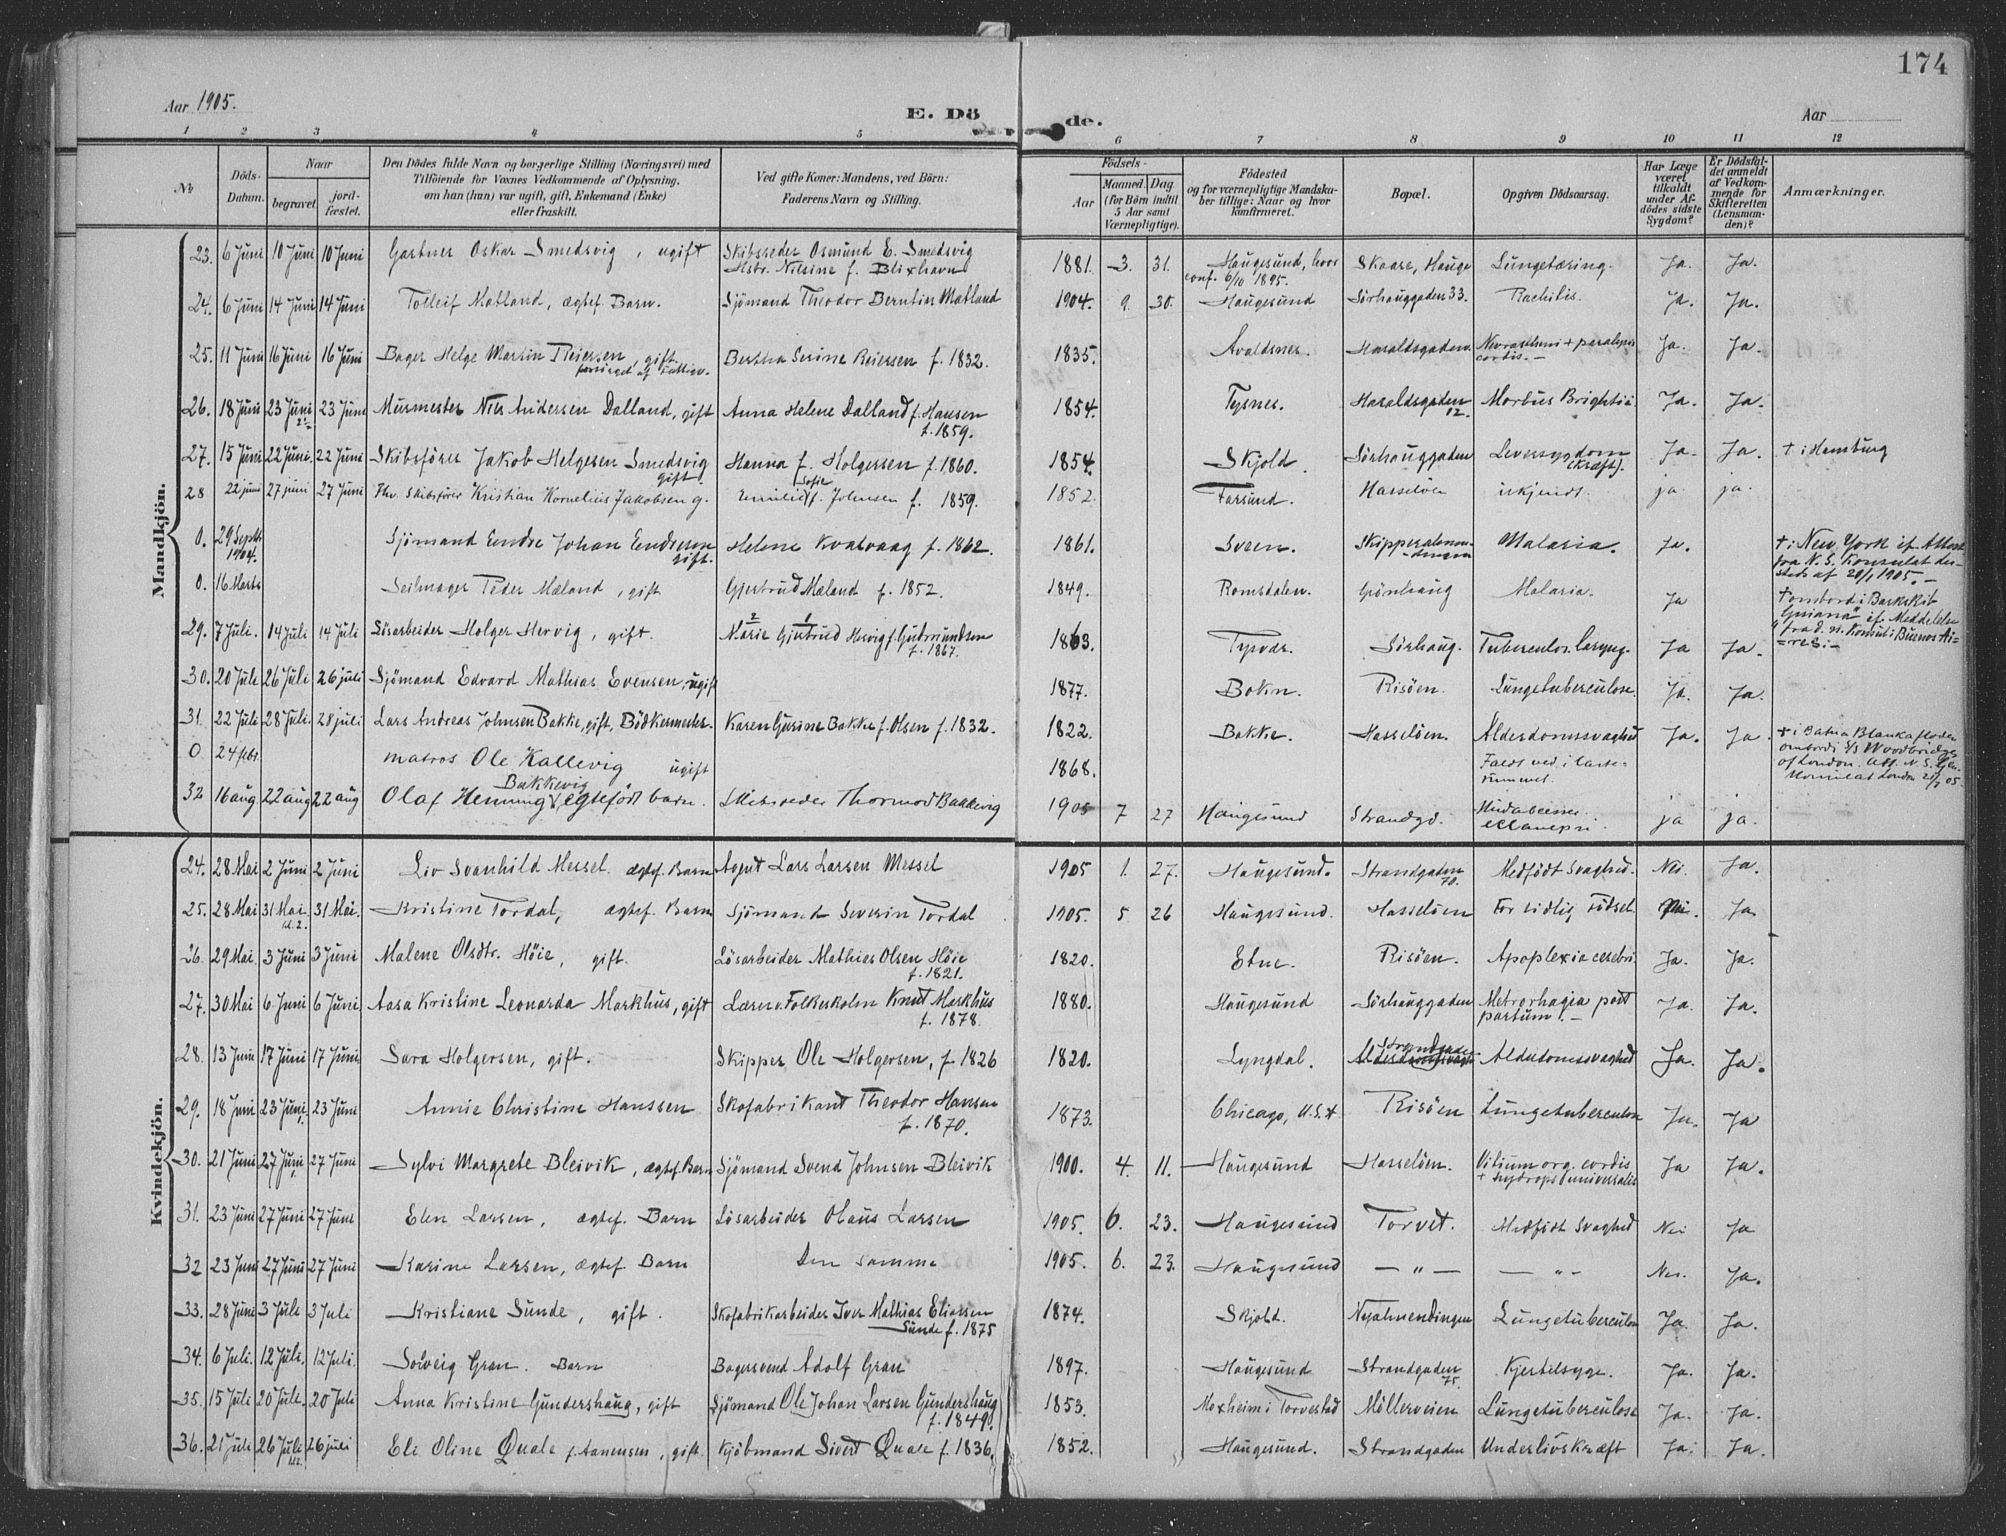 174
Aar 1905.
E. Döde.
Aar
1 2 3 4 5 6 7 8 9 10 11 12
No
Döds-Datum.
Naar
begravet.
jord-fæstet.
Den Dödes fulde Navn og borgerlige Stilling (Næringsvei) med
Tilföiende for Voxnes Vedkommende af Oplysning,
om han (hun) var ugift, gift, Enkemand (Enke)
eller fraskilt.
Ved gifte Koner: Mandens, ved Börn:
Faderens Navn og Stilling.
Födsels-
Aar
Maaned. Dag
(for Börn indtil
5 Aar samt
Værnepligtige).
Födested
og for værnepligtige Mandska-
ber tillige: Naar og hvor
konfirmeret.
Bopæl.
Opgiven Dödsaarsag.
Har Læge
været
tilkaldt
under Af-
dödes sidste
Sygdom?
Er Dödsfal-
det anmeldt
af Vedkom-
mende for
Skifteretten
(Lensman-
den)?
Anmærkninger.
Mandkjön.
23. 6 Juni 10 Juni 10 Juni Gartner Oskar Smedsvig, ugift Skibsreder Osmund E. Smedsvig 1881. 3. 31. Haugesund, hvor Skaare, Hauge Lungetæring. Ja. Ja.
Hstr. Nilsine f. Blixhavn conf. 6/10 1895.
24. 6 Juni 14 Juni 14 Juni Tolleif Matland, ægtef. Barn. Sjömand Theodor Berntin Matland 1904. 9. 30. Haugesund Sørhauggaden 33. Rachitis. Ja. Ja.
25. 11 Juni 16 Juni 16 Juni Bager Helge Martin Reiersen, gift Bertha Serine Reiersen f. 1832. 1835. Avaldsnes. Haraldsgaden Nevrastheni + paralysis Ja. Ja.
forsørget af Fattigv. cordis.
26. 18 Juni 23 Juni 23 Juni Murmester Nils Andersen Dalland, gift Anna Helene Dalland f. Hansen 1854. Tysnes. Haraldsgaden Morbus Brightii Ja. Ja.
f. 1859. 12.
27. 15 Juni 22 Juni. 22 Juni Skibsfører Jakob Helgesen Smedsvig Hanna f. Holgersen f. 1860. 1854. Skjold. Sørhauggaden Leversygdom Ja. Ja. + i Hamburg
gift. (Kræft).
28 22 juni 27 juni 27 Juni Fhv. Skibsfører Kristian Kornelius Jakobsen g. Emilie Sofie f. Johnsen f. 1859. 1852. Farsund. Hasseløen ukjendt. ja ja.
0. 29 Septbr. Sjømand Endre Johan Endresen Helene Kvalvaag f. 1862. 1861. Sveen. Skippersalmen- Malaria. Ja. + i New York if. Attest
1904. gift. dingen fra N. S. Konsulat der-
steds af 20/1 1905.
0. 16 Marts Seilmager Peder Mæland, gift Gjertrud Mæland f. 1852. 1849. Romsdalen. Grønhaug Malaria. Ja + ombord i Barkskib
"Guiana" if. Meddelelse
29. 7 Juli. 14 Juli 14 Juli Løsarbeider Holger Hervig, gift. Marie Gjertrud Hervig f. Gudmundsen 1863. Tysvær. Sørhaug. Tuberculos. laryng. Ja Ja. fra d. n. Konsul i Buenos Ai-
f. 1867. res.
30. 20 Juli 26 Juli 26 juli Sjømand Edvard Mathias Evensen, ugift 1877. Bokn. Risøen. Lungetuberculose. Ja. Ja.
31. 22 Juli 28 Juli. 28 juli Lars Andreas Johnsen Bakke, gift, Bødkermester. Karen Gurine Bakke f. Olsen f. 1832. 1822. Bakke. Hasseløen. Alderdomssvaghed Ja. Ja. + i Bahia Blanka floden
0 24 febr. matros Ole Kallevig ugift 1868. Faldt ned i laste- ombord i S/S Woodbridge
rummet. of London. Att. N. S. Gen.
Konsulat London
32 16 aug 22 aug 22 aug Olaf Henning Bakkevig, egtefødt barn. Skibsreder Thormod Bakkevig 1905 7 27 Haugesund Strandgd. ja ja.
Kvindekjön.
24. 28 Mai 2 Juni 2 Juni Liv Svanhild Messel. ægtef. Barn Agent Lars Larsen Messel 1905 1. 27. Haugesund. Strandgaden Medfødt Svaghed. Nei. Ja.
70.
25. 28 Mai 31 Mai. 31 Mai. Kristine Tordal, ægtef. Barn Sjømand Severin Tordal 1905. 5. 26 Haugesund. Hasseløen For tidlig Fødsel. Nei. Ja.
26. 29 Mai. 3 Juni 3 Juni Malene Olsdtr. Høie, gift. Løsarbeider Mathias Olsen Høie 1820. Etne. Risøen. Apoplexia cerebri. Ja. Ja.
f. 1821.
27. 30 Mai 6 Juni 6 Juni Aasa Kristine Leonarda Markhus, gift Lærer v. Folkeskolen Knut Markhus 1880. Haugesund Sørhauggaden Metrorhagia post Ja. Ja.
f. 1878. partum.
28. 13 Juni 17 Juni 17 Juni Sara Holgersen, gift. Skipper Ole Holgersen, f. 1826 1820. Lyngdal. Strandgaden Alderdomssvaghed Ja. Ja.
29. 18 Juni 23 Juni 23 Juni Annie Christine Hanssen Skofabrikant Theodor Hansen 1873. Chicago, U.S.A Risøen Lungetuberculose Ja. Ja
f. 1870.
30. 21 Juni 27 Juni 27 Juni Sylvi Margrete Bleivik, ægtef. Barn Sjømand Svend Johnsen Bleivik 1900. 4. 11. Haugesund Hasseløen. Vitium org. cordis Ja Ja.
+ hydrops universalis
31. 23 Juni 27 Juni 27 Juni Elen Larsen, ægtef. Barn Løsarbeider Olaus Larsen 1905. 6. 23. Haugesund Torvet. Medfødt Svaghed Nei Ja
32 23 Juni 27 Juni 27 Juni Karine Larsen, ægtef. Barn Den samme 1905. 6. 23. Haugesund — " — — " — Nei. Ja.
33. 28 Juni 3 Juli 3 Juli Kristiane Sunde, gift. Skofabrikarbeider Iver Mathias Eliassen 1874. Skjold. Nyalmendingen Lungetuberculose Ja. Ja.
Sunde f. 1875
34. 6 Juli. 12 Juli. 12 Juli. Solveig Gran. Barn Bagersvend Adolf Gran 1897. Haugesund Strandgaden Kjertelsyge. Ja. Ja.
75.
35. 15 Juli 20 Juli. 20 Juli Anna Kristine Gundershaug, gift Sjømand Ole Johan Larsen Gundershaug 1853. Moxheim i Torvestad Møllerveien Lungetuberculose Ja. Ja.
f. 1849.
36. 21 Juli 26 Juli 26 juli Eli Oline Quale f. Aanensen, gift. Kjøbmand Sivert Quale f. 1836. 1852. Haugesund. Strandgaden Underlivskræft Ja. Ja.